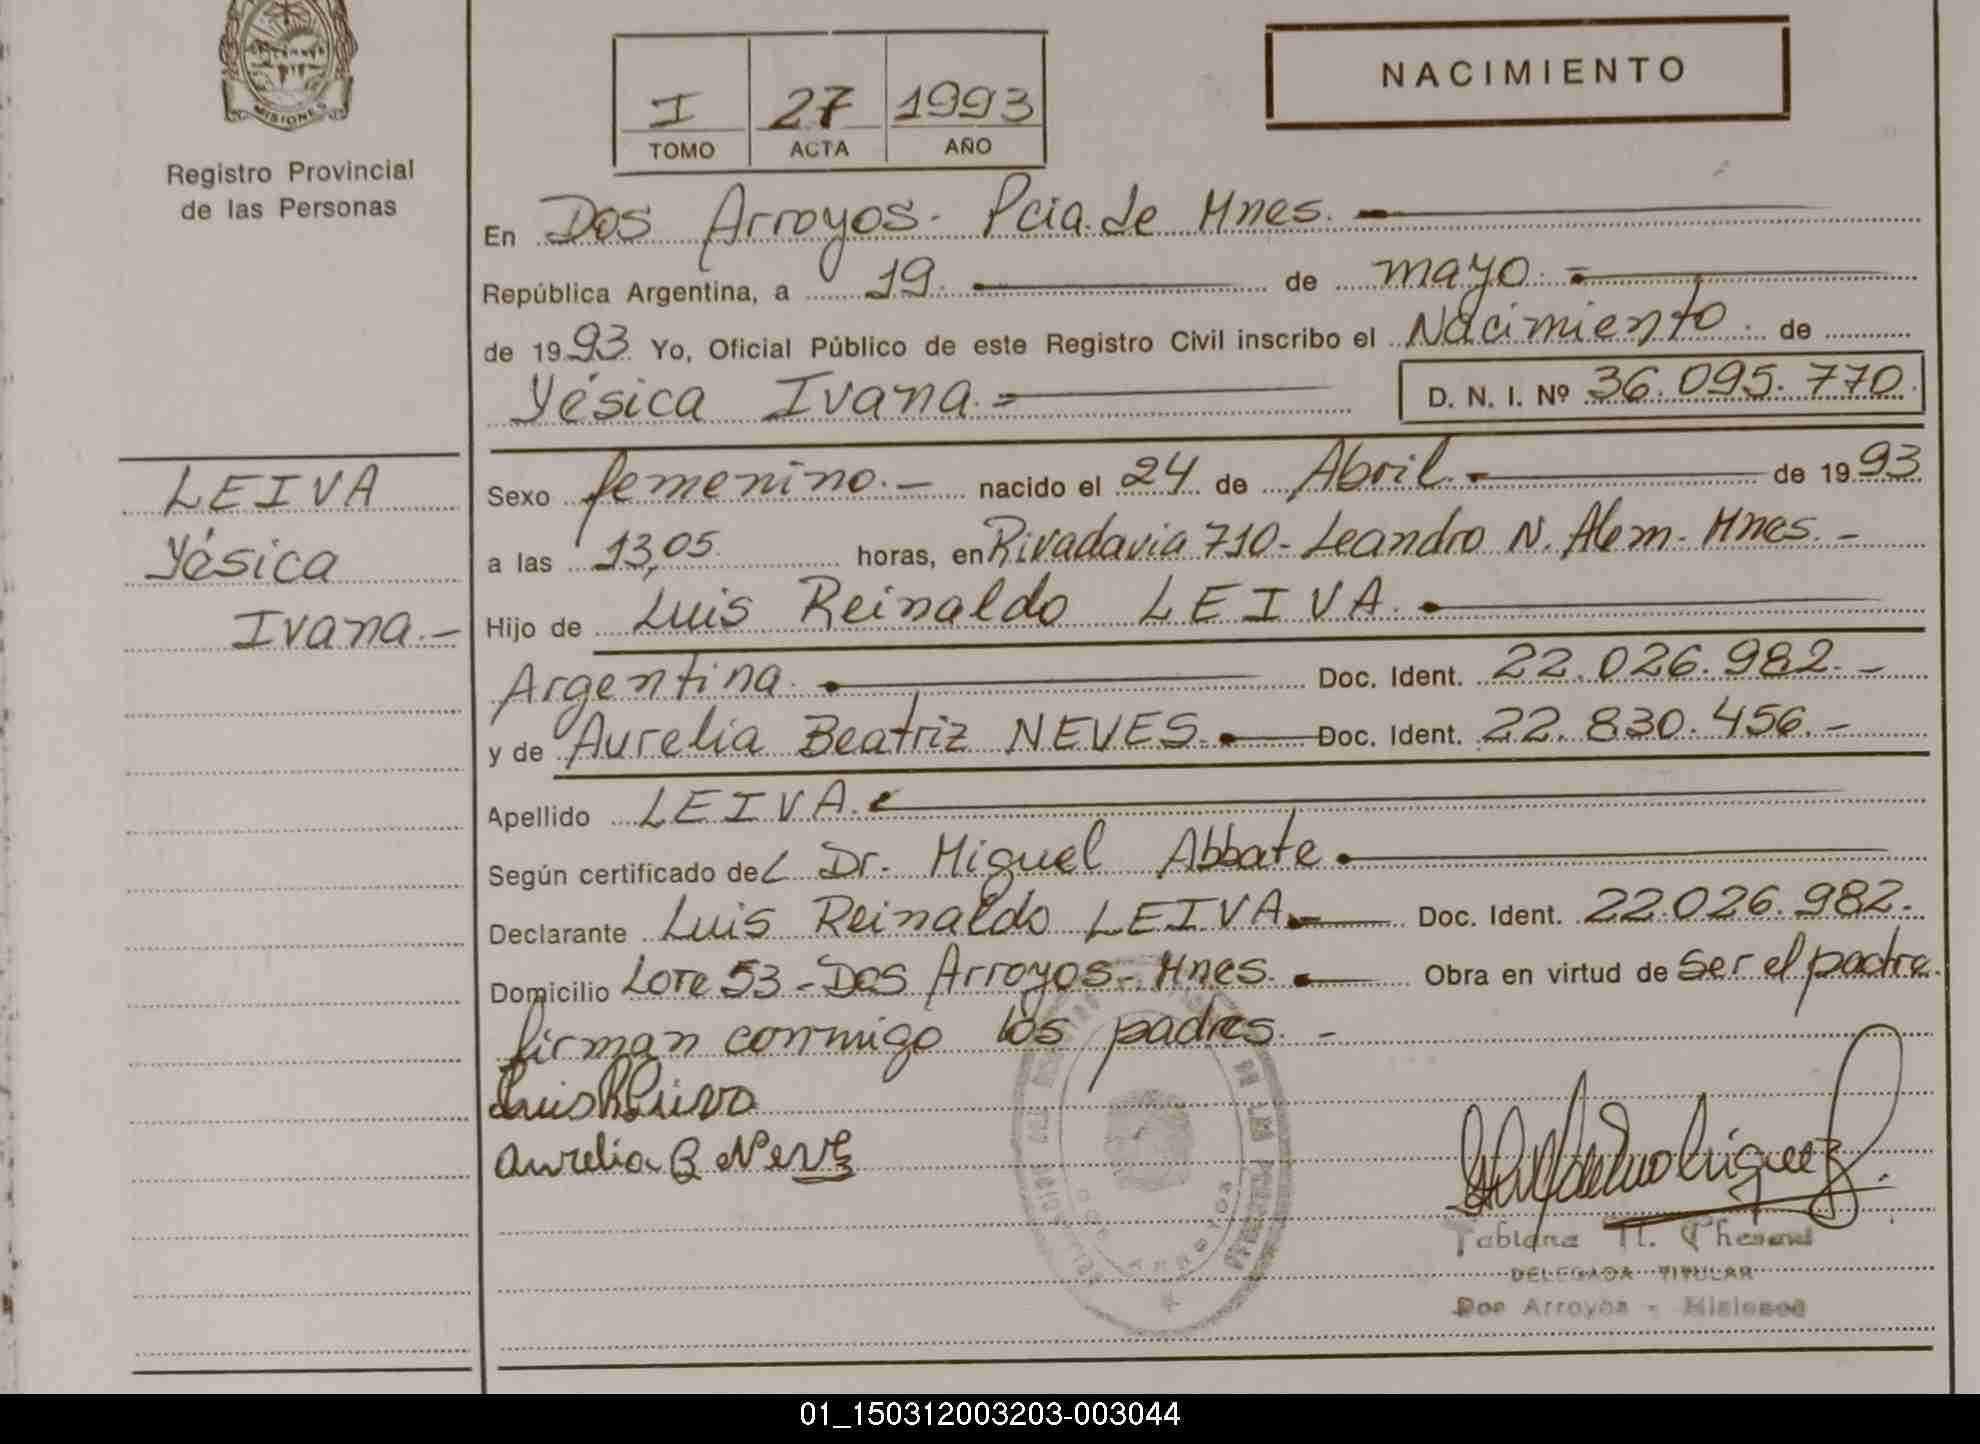 MISIONES
Registro Provincial
de las Personas
I 27 1993
TOMO ACTA AÑO
NACIMIENTO
En Dos Arroyos- Pcia. de Mnes.
República Argentina, a 19. de mayo.
de 1993. Yo, Oficial Público de este Registro Civil inscribo el Nacimiento. de
Yésica Ivana.
D. N. I. Nº 36.095.770.
LEIVA
Yésica
Ivana.-
Sexo femenino.- nacido el 24 de Abril. de 1993
a las 13,05 horas, en Rivadavia 710- Leandro N. Alem- Mnes.-
Hijo de Luis Reinaldo LEIVA.
Argentina. Doc. Ident. 22.026.982.-
y de Aurelia Beatriz NEVES. Doc. Ident. 22.830.456.-
Apellido LEIVA.
Según certificado del Dr. Miguel Abbate
Declarante Luis Reinaldo LEIVA. Doc. Ident. 22.026.982.
Domicilio Lote 53 - Dos Arroyos- Mnes. Obra en virtud de ser el padre.
firman conmigo los padres.-
Luis R Leiva
Aurelia B Neves
DE LAS PERSONAS
Dos Arroyos
DELEGADA TITULAR
Dos Arroyos - Misiones
01_150312003203-003044